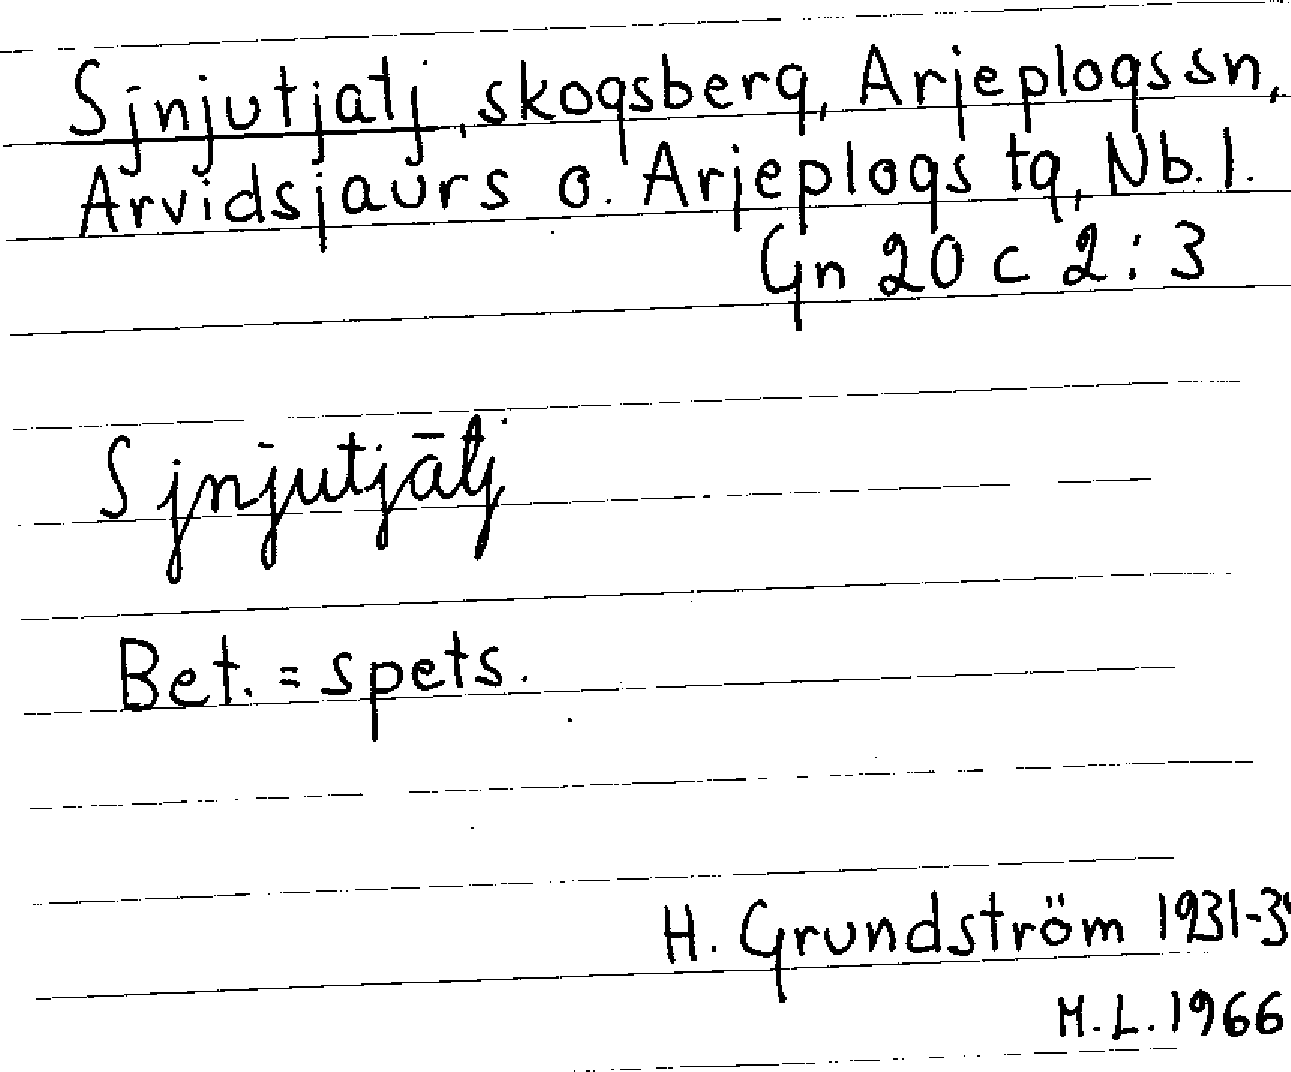 Sjnjutjatj, skogsberg, Arjeplogs sn,
Arvidsjaurs o. Arjeplogs tg, Nb. l.
Gn 20 c 2:3
Sjnjutjātj
Bet. = spets.
H. Grundström
M.L. 1966